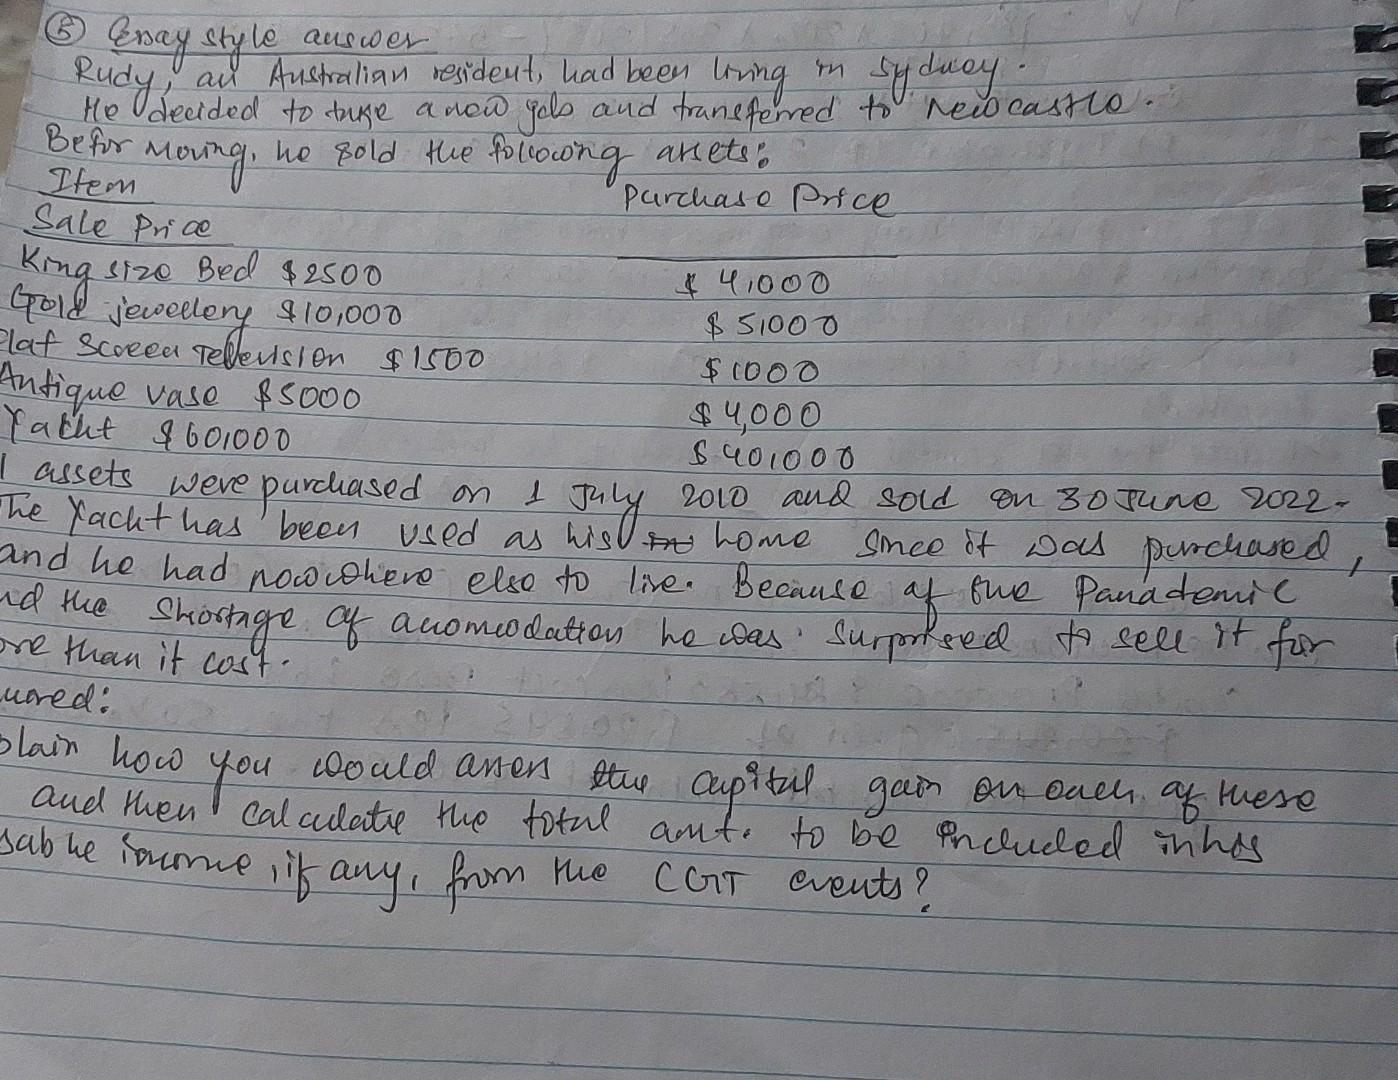 ⑤ Essay style answer
Rudy, an Australian resident, had been living in Sydney.
He decided to take a new job and transferred to Newcastle.
Befor moving, he sold the following assets:
Item
Purchase Price
Sale Price
King size Bed $2500 $4,000
Gold jewellery $10,000 $5,000
Flat Screen Television $1500 $1000
Antique vase $5000 $4,000
Yacht $60,000 $40,000
l assets were purchased on 1 July 2010 and sold on 30 June 2022.
The Yacht has been used as his home since it was purchased,
and he had nowwhere else to live. Because of the Panademic
nd the shortage of accomodation he was surprised to sell it for
ore than it cost.
uired:
plain how you would assess the capital gain on each of these
and then calculate the total amt. to be included in his
sable income, if any, from the CGT events?